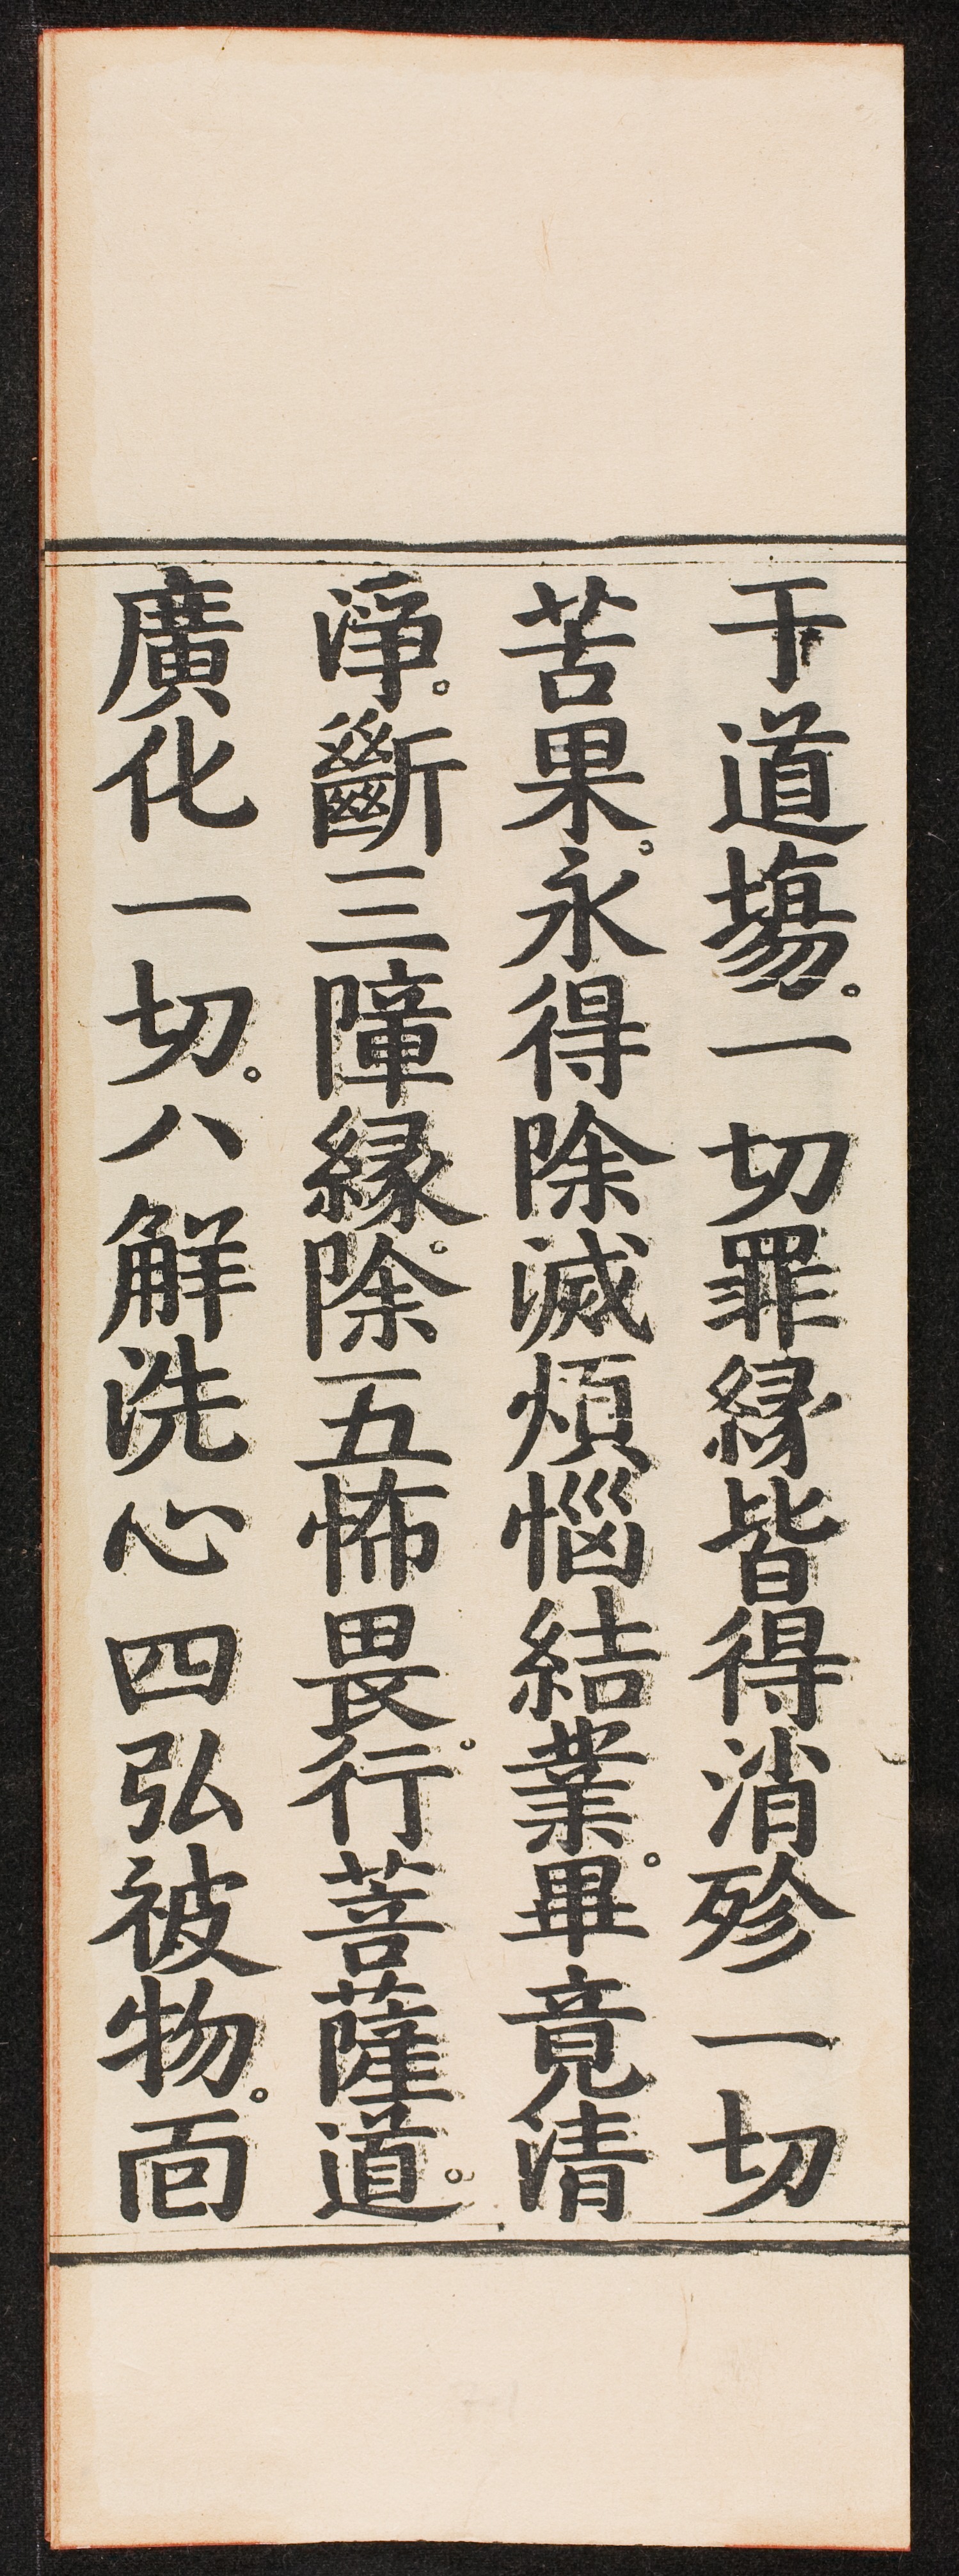 于道場。一切罪緣皆得消殄一切
苦果。永得除滅煩惱結業。畢竟清
淨。斷三障緣。除五怖畏。行菩薩道。
廣化一切。八解洗心四弘被物。面